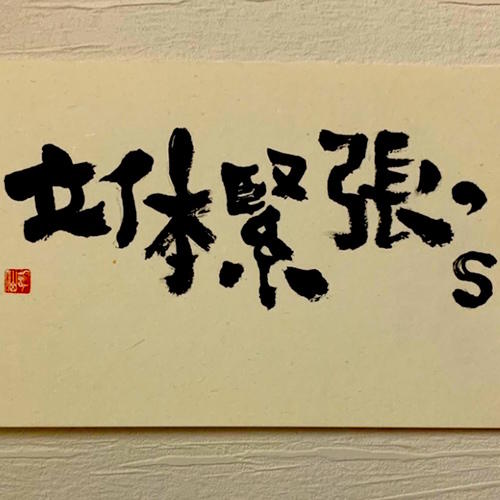 立体緊張's